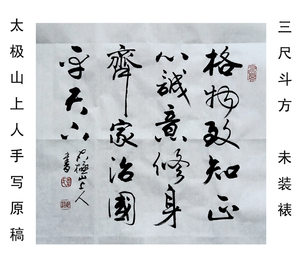 三尺斗方 未装裱
格物致知正
心誠意修身
齊家治國
平天下
太極山上人
書
太极山上人手写原稿